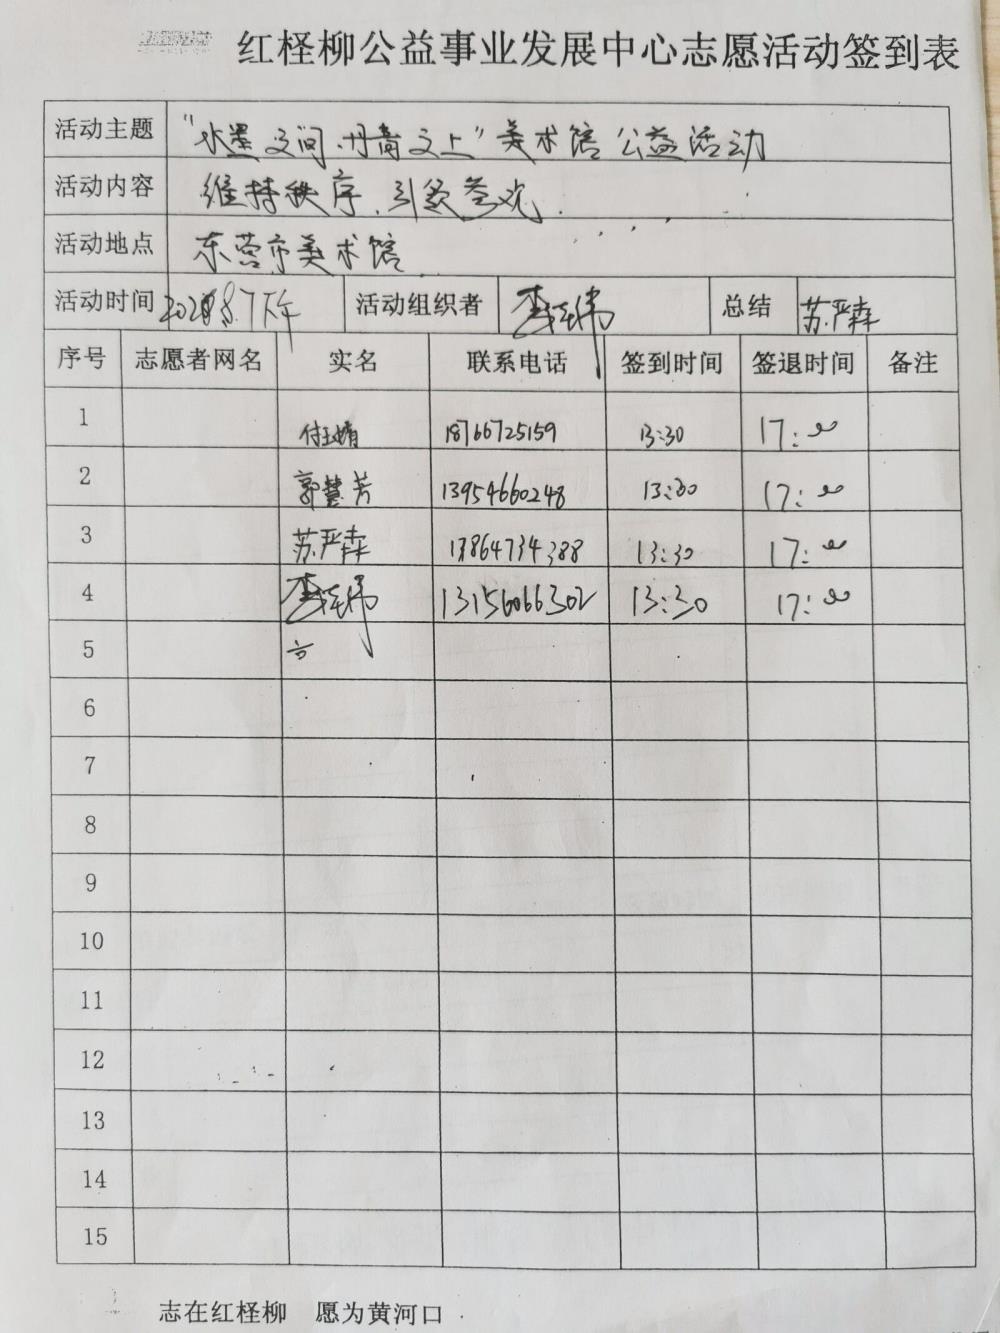 红柽柳公益事业发展中心志愿活动签到表
活动主题 “水墨之间、丹青之上”美术馆公益活动
活动内容 维持秩序、引领参观.
活动地点 东营市美术馆
活动时间 8.7下午 活动组织者 总结 苏严森
序号 志愿者网名 实名 联系电话 签到时间 签退时间 备注
1 付玉婧 18766725159 13:30 17:00
2 郭慧芳 13954660248 13:30 17:00
3 苏严森 13864734388 13:30 17:00
4 13156066302 13:30 17:00
5
6
7
8
9
10
11
12
13
14
15
志在红柽柳 愿为黄河口